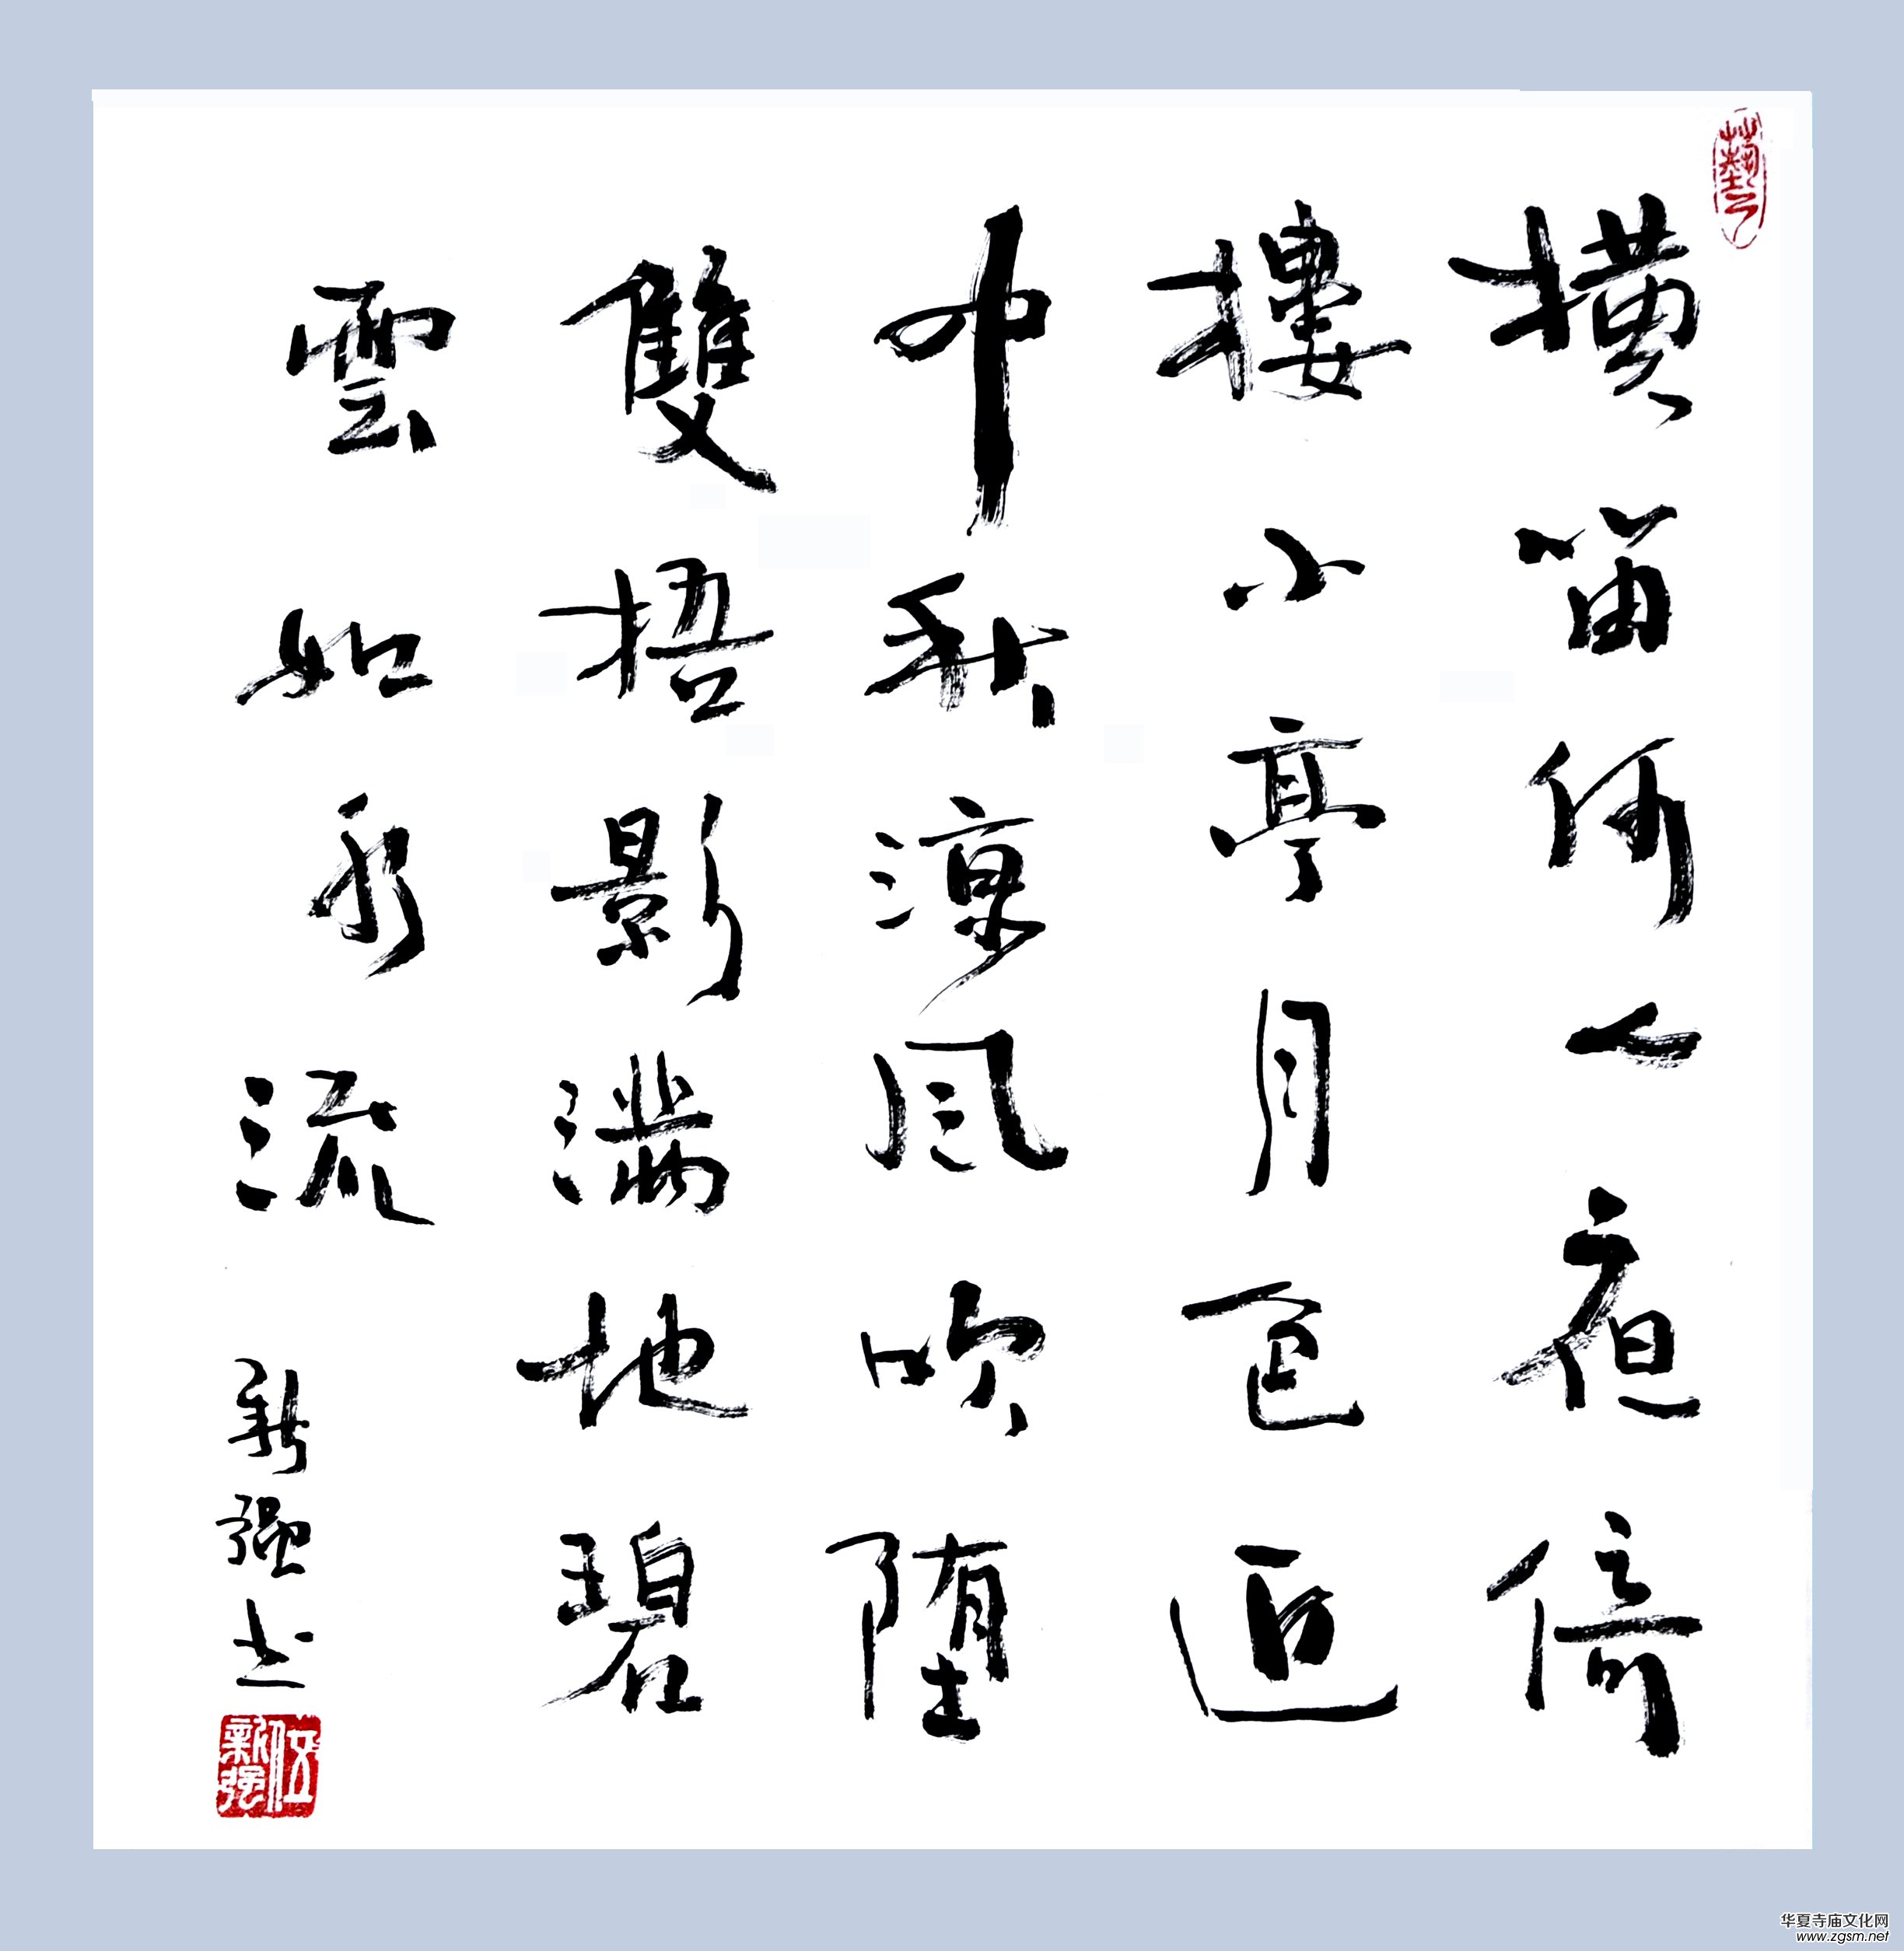 藝
横笛何人夜倚
樓小亭月色近
中秋凉风吹堕
雙梧影滿地碧
雲如水流
新强书
伍新强
华夏寺庙文化网
www.zgsm.net